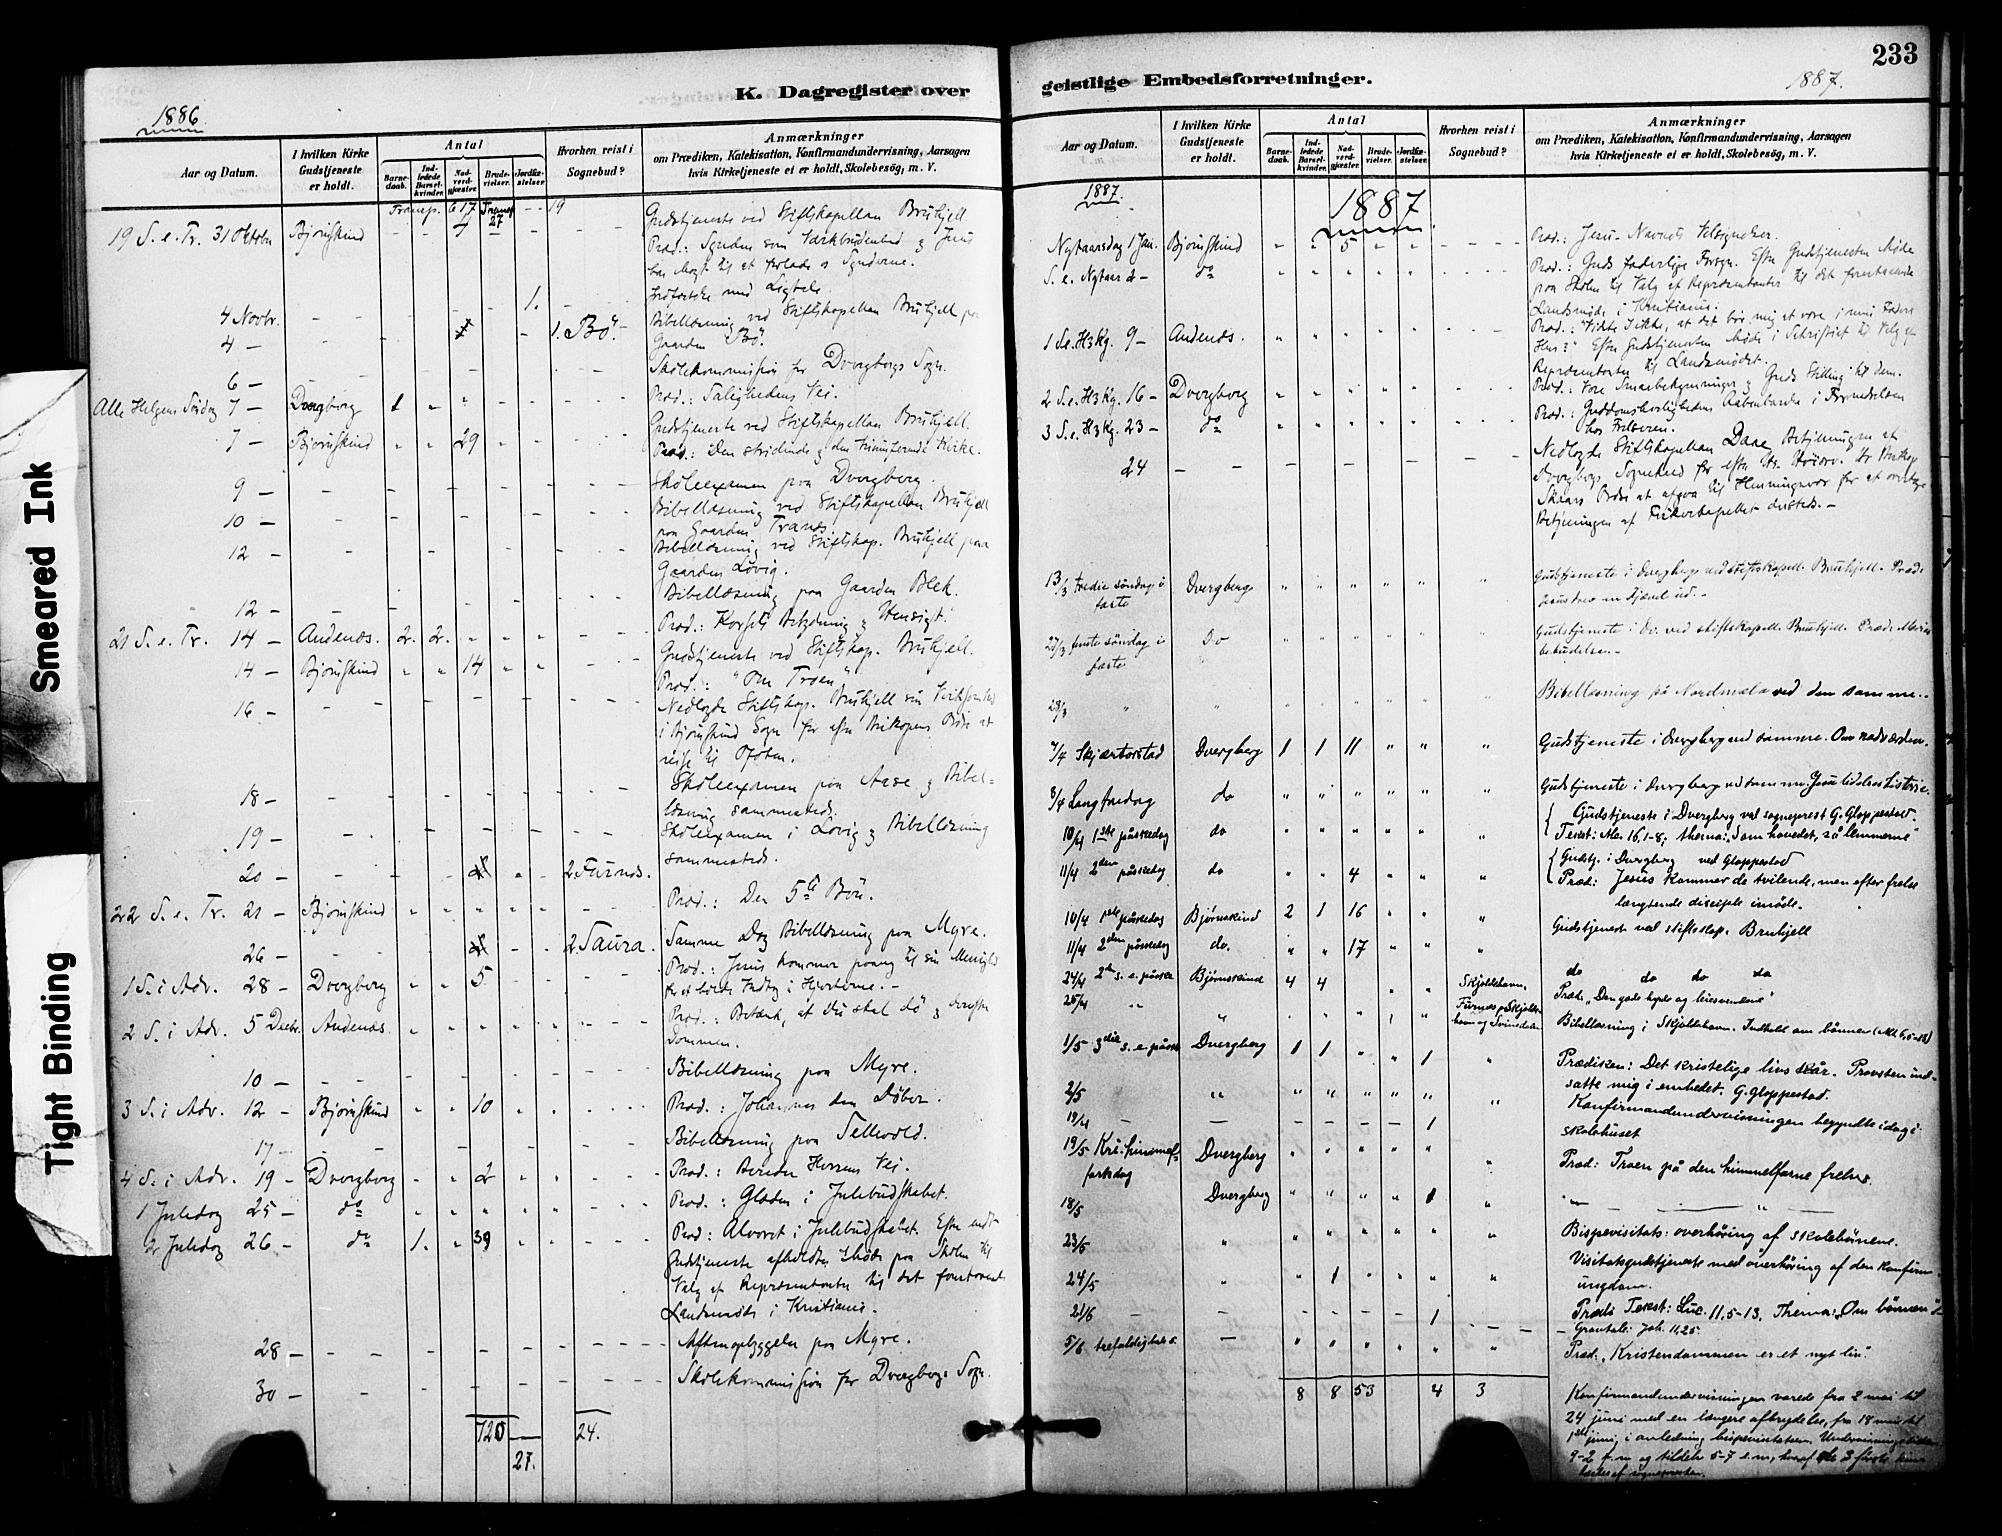 233
K. Dagregister over
geistlige Embedsforretninger.
1886
1887.
Aar og Datum.
I hvilken Kirke Gudstjeneste er holdt.
Antal
Barnedaab.
Indledede Barselkvinder.
Nadverdgjæster.
Brudevielser.
Jordfæstelser.
Hvorhen reist i Sognebud?
Anmærkninger
om Prædiken, Katekisation, Konfirmandundervisning, Aarsagen
hvis Kirketjeneste ei er holdt, Skolebesög, m. V.
Transp. 617 Transp. 27 - - 19
Gudstjeneste ved Stiftskapellan Bruhjell.
19 S. e. Tr. 31 Oktobr Bjørnskind - - 7
Præd.: Synden som
har Magt til at forlade os Synderne.
4 Novbr. 1.
Bibellæsning ved Stiftskapellan Bruhjell
4 - 1. Bø.
Gaarden Bø.
6 - Skolekommission for Dverbergs Sogn.
Alle Helgens Søndag 7 - Dverberg 1 Præd.: Salighedens Vei.
Gudstjeneste ved Stiftskapellan Bruhjell.
7 - Bjørnskind 29 Præd.: Den stridende og den triumferende Kirke.
9 - Skoleexamen paa Dverberg.
10 - Bibellæsning ved Stiftskapellan Bruhjell
paa Gaarden Tranes.
12 - Bibellæsning ved Stiftskap. Bruhjell paa
Gaarden Lovig.
12 - Bibellæsning paa Gaarden Blek.
21 S. e. Tr. 14 - Andenæs. 2. 2. Præd.: Korsets Betydning og Hensigt.
Gudstjeneste ved Stiftskap. Bruhjell.
14 - Bjørnskind 14 Præd.: "Om Troen".
16 - Nedlagde Stiftskap. Bruhjell sin Virksomhed
i Bjørnskind Sogn for efter Biskopens Ordre at
reise til Ofoten.
18 - Skoleexamen paa Aase og Bibel-
læsning sammesteds.
19 - Skoleexamen i Lovig og Bibellæsning
sammesteds.
20 - 2. Furnes.
22 S. e. Tr. 21 - Bjørnskind Præd.: Den 5te Bøn.
26 - 2. Saura. Samme Dag Bibellæsning paa Myre.
1 S. i Adv. 28 - Dverberg 5 Præd.: Jesus kommer paany til sin Menighed
2 S. i Adv. 5 Decbr. Andenæs. Præd.: Betænk, at du skal dø og
Dommen.
10 - Bibellæsning paa Myre.
3 S. i Adv. 12 - Bjørnskind 10 Præd.: Johannes den Døber.
17 - Bibellæsning paa
4 S. i Adv. 19 - Dverberg 2 Præd.: Bereder Herrens Vei.
1 Juledag 25 - do Præd.: Glæden i Julebudskabet.
2 Juledag 26 - do 1. 39 Præd: Alvoret i Julebudskabet. Efter endt
Gudstjeneste afholdtes Møde paa Skolen til
Valg af Repræsentanter til det forestaaende
Landsmøde i Kristiania.
28 - Aftenopbyggelse paa Myre.
30 - Skolekommission for Dverbergs Sogn.
720 24.
27.
Aar og Datum.
I hvilken Kirke Gudstjeneste er holdt.
Antal
Barnedaab.
Indledede Barselkvinder.
Nadverdgjæster.
Brudevielser.
Jordfæstelser.
Hvorhen reist i Sognebud?
Anmærkninger
om Prædiken, Katekisation, Konfirmandundervisning, Aarsagen
hvis Kirketjeneste ei er holdt, Skolebesög, m. V.
1887. 1887
Nytaarsdag 1 Jan. Bjørnskind 5 Præd.: Jesu-Navnets Velsignelser.
S. e. Nytaar 2 - do Præd.: Guds faderlige Forsyn. Efter Gudstjenesten Møde
paa Skolen til Valg af Repræsentanter til det forestaaende
Landsmøde i Kristiania.
1 S.e.H3kg. 9 - Andenæs. Præd.: "Vidste I ikke, at det bør mig at være i min Faders
Hus?" Efter Gudstjenesten Møde i til Valg af
Repræsentanter til Landsmødet.
2 S.e.H3kg. 16 - Dverberg Præd.: Vore Smaabekymringer og Guds Stilling til dem.
3 S.e.H3kg. 23 - do Præd.: Guddomsherlighedens Aabenbarelse i Fornedrelsen
hos Frelseren.
24 Nedlagde Stiftskapellan Daae Betjeningen af
Dverbergs Sognekald for efter Biskop
Skaars Ordre at afgaa til Henningsvær for at overtage
Betjeningen af Fiskerkapellet dersteds. -
13/3 tredie söndag i faste Dverberg Gudstjeneste i Dverberg ved stiftskapell. Bruhjell. Præd:
Jesus drev en djævel ud. -
27/3 femte söndag i faste Do Gudstjeneste i Do. ved stiftskapell. Bruhjell. Præd: Marias
bebudelse. -
29/3 Bibellæsning på Nordmela ved den samme. -
7/4 Skjærtorsdag Dverberg 1 1 11 Gudstjeneste i Dverberg ved samme. Om nadværden.
8/4 Langfredag do Gudstjeneste i Dverberg ved samme. Jesu lidelses historie.
Gudstjeneste i Dverberg ved sogneprest G. Gloppestad.
10/4 1ste påskedag do Text: Mc. 16,1-8; thema: "Som hovedet, så lemmerne"
Gudstj. i Dverberg ved Gloppestad
11/4 2den påskedag do 4 Præd: Jesus kommer de tvilende, men efter frelse
længtende disciple imøde.
10/4 1ste påskedag Bjørnskind 2 1 16 Gudstjeneste ved stiftskap. Bruhjell
11/4 2den påskedag do. 17 do do do do
24/4 2den s. e. påske Bjørnskind 4 4 Skjoldehavn. Præd: "Den gode hyrde og leiesvendene"
25/4 Furnes, Skjoldehavn og Svinedalen Bibellæsning i Skjoldehavn. Indhold om bønnen
1/5 3die s. e. påske Dverberg 1 1 1 Prædiken: Det kristelige livs kår. Provsten ind-
satte mig i embedet. G. Gloppestad.
2/5 Konfirmandundervisningen begyndte idag i
skolehuset
19/4 1
19/5 Kri. himmelfartsdag Dverberg Præd: Troen på den himmelfarne frelser.
18/5 Dverberg 1
23/5 Bispevisitats: overhøring af skolebørnene.
24/5 1 Visitatsgudstjeneste med overhøring af den konfirm.
ungdom.
21/6 1 Præds Text: Luc. 11,5-13. Thema: "Om bønnen"
Gravtale: Joh. 11,25.
5/6 trefoldigheds s. Præd: "Kristendommen er et nyt liv."
8 8 53 4 3
Konfirmandundervisningen varede fra 2 mai til
24 juni med en længere afbrydelse, fra 18 mai til
1ste juni, i anledning bispevisitatsen. Undervisningstiden
9-2 f.m og tildels 5-7 e.m, hvoraf de 3 første
læstes af sognepresten.
Smeared Ink
Tight Binding